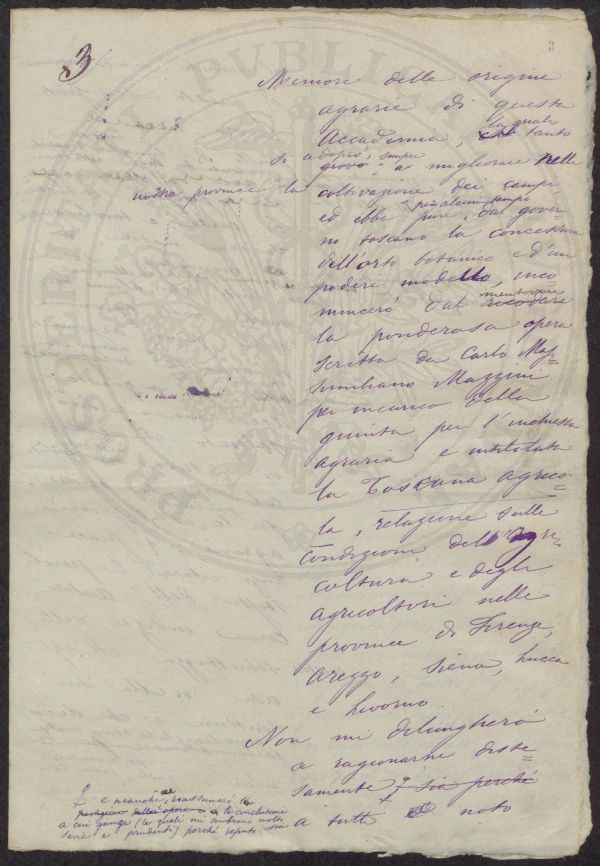 3
3
Memore delle origini
agrarie di questa
Accademia, la quale tanto
si adoprò, sempre
giovò a migliorare nelle
nostre provincie la coltivazione dei campi
ed ebbe pure, per alcun tempo dal gover-
no toscano la concessione
dell'orto botanico e d'un
podere modello, inco
mincerò dal mentovare
la ponderosa opera
scritta da Carlo Mas-
similiano Mazzini
per incarico della
giunta per l'inchiesta
agraria e intitolata
la Toscana agrico=
la, relazione sulle
condizioni dell'agri-
coltura e degli
agricoltori nelle
provincie di Firenze,
Arezzo, Siena, Lucca
e Livorno.
Non mi dilungherò
a ragionarne diste=
samente sia perché
a tutti noto
e neanche riassumerò le
della opera e le conclusioni
a cui giunge (le quali mi sembrano molto
savie e prudenti) perché reputo sia
PVBLICA
PROSPERITATI